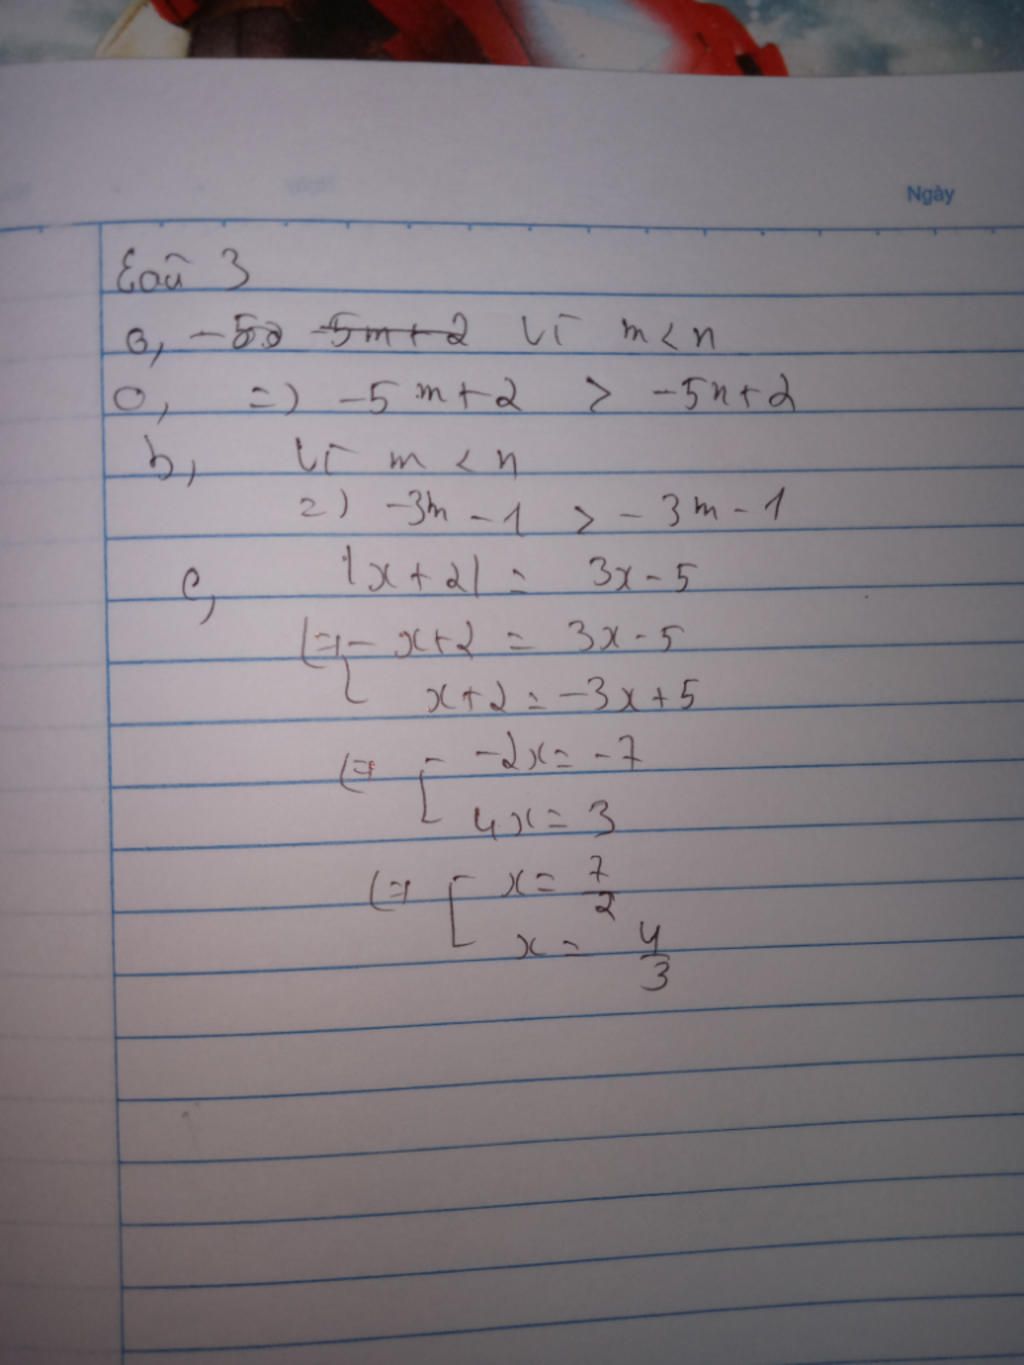 Ngày
Câu 3
a, -5m+2 Vì m < n
a, => -5m+2 > -5n+2
b, Vì m < n
=> -3m - 1 > -3m - 1
c, |x+2| = 3x-5
(=> [ x+2 = 3x-5
x+2 = -3x+5
(=> [ -2x = -7
4x = 3
(=> [ x = 7/2
x = 4/3